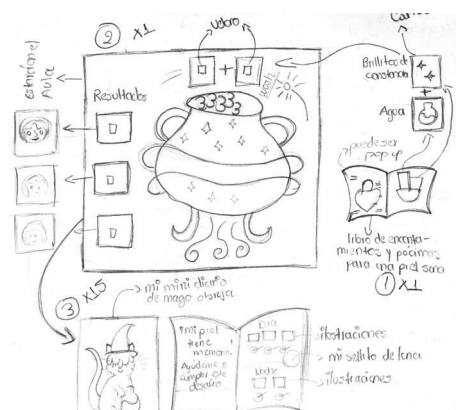 ② X1
velcro
Car
Estación el
Aula
Resultados
+
woah
Brillitos de
constancia
+
Agua
puede ser
pop up
libro de encanta-
mientos y pócimas
para una piel sana
① X1
③ X15
mi mini diario
de mago oveja
mi piel
tiene
memoria
Ayúdame a
cumplir este
desafío
Día
Noche
ilustraciones
mi sellito de lana
ilustraciones